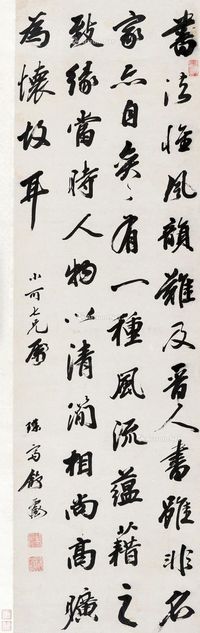 書法惟風韻難及晉人書雖非名
家亦自奕奕有一種風流蘊藉之
致緣當時人物以清簡相尚高曠
為懷故耳
小可七兄屬
铁雪舒霨